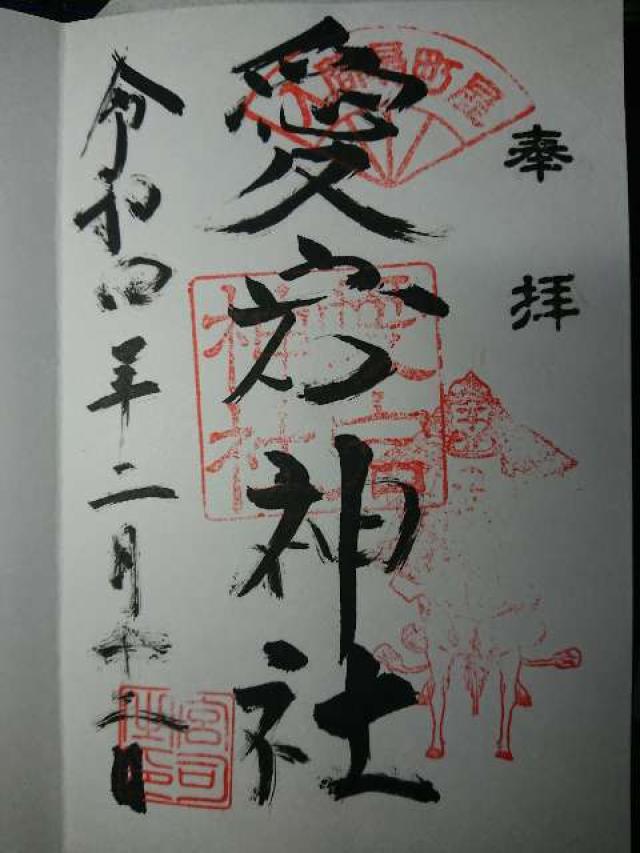 奉拝
扇町屋
愛宕神社
愛宕神社
令和四年二月十二日
宮司之印